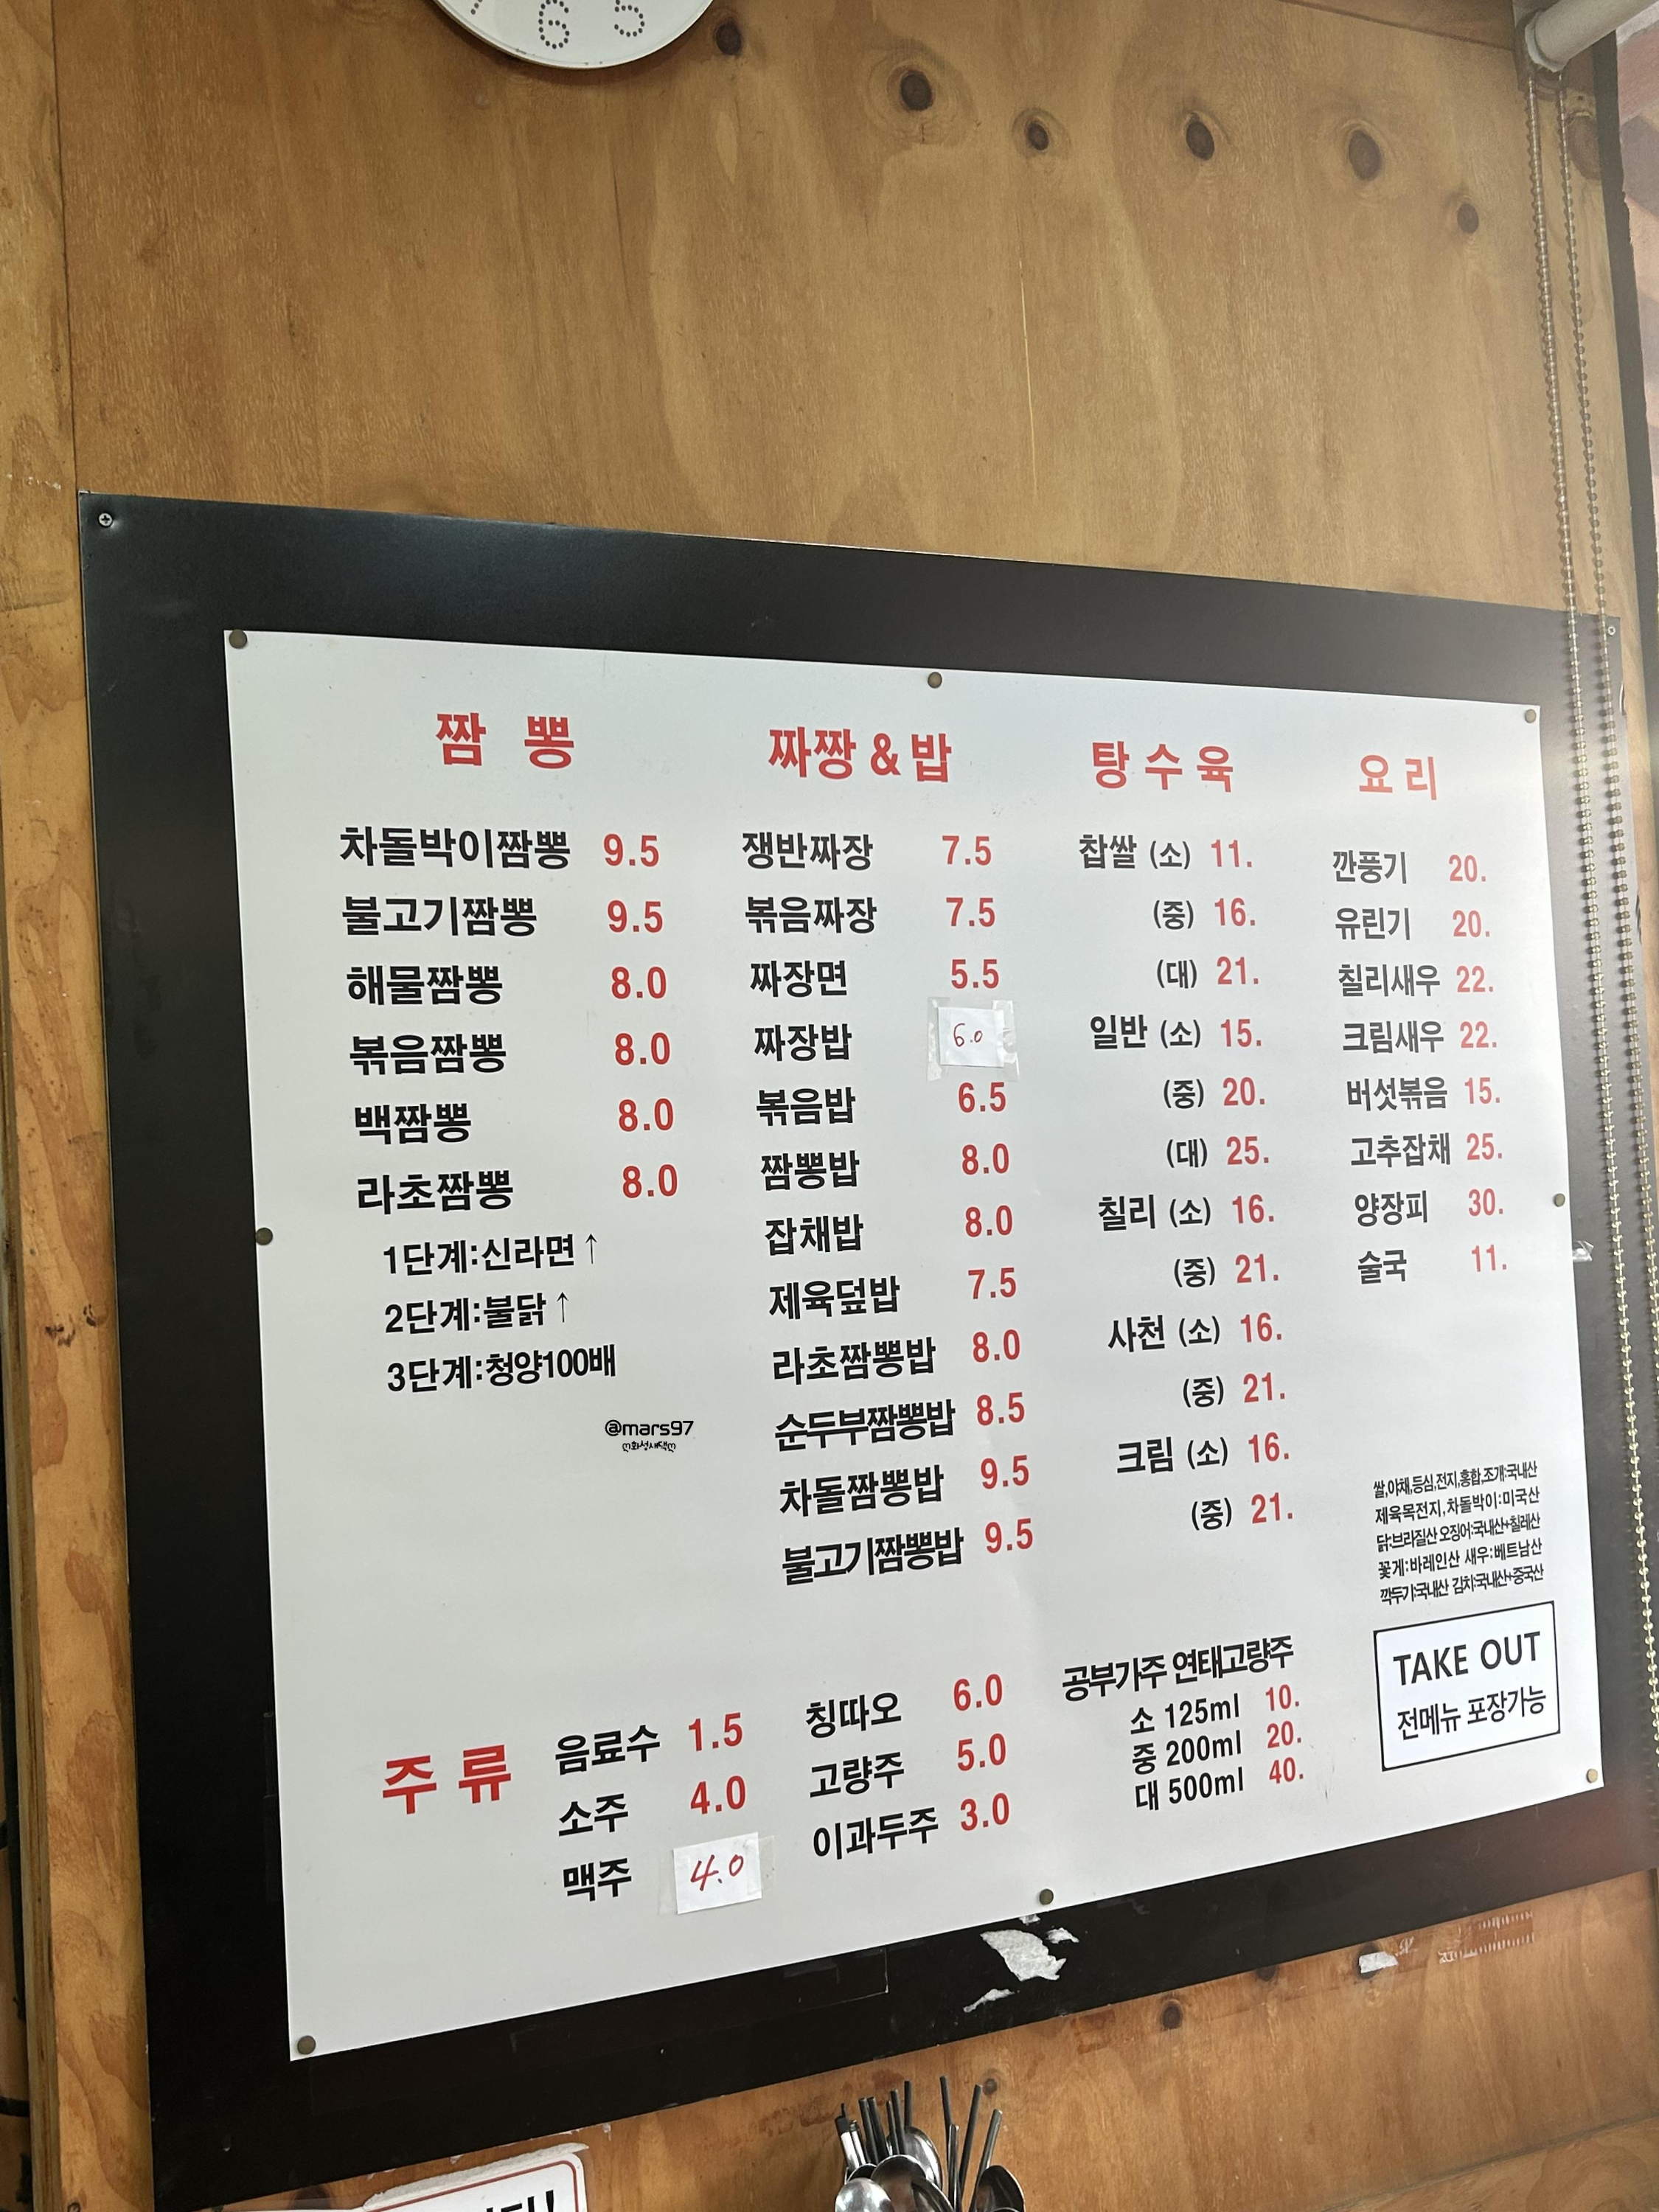 6 5
짬 뽕
차돌박이짬뽕 9.5
불고기짬뽕 9.5
해물짬뽕 8.0
볶음짬뽕 8.0
백짬뽕 8.0
라초짬뽕 8.0
1단계:신라면↑
2단계:불닭↑
3단계:청양100배
@mars97
ღ화성새댁ღ
짜짱 & 밥
쟁반짜장 7.5
볶음짜장 7.5
짜장면 5.5
짜장밥 6.0
볶음밥 6.5
짬뽕밥 8.0
잡채밥 8.0
제육덮밥 7.5
라초짬뽕밥 8.0
순두부짬뽕밥 8.5
차돌짬뽕밥 9.5
불고기짬뽕밥 9.5
탕 수 육
찹쌀 (소) 11.
(중) 16.
(대) 21.
일반 (소) 15.
(중) 20.
(대) 25.
칠리 (소) 16.
(중) 21.
사천 (소) 16.
(중) 21.
크림 (소) 16.
(중) 21.
요 리
깐풍기 20.
유린기 20.
칠리새우 22.
크림새우 22.
버섯볶음 15.
고추잡채 25.
양장피 30.
술국 11.
쌀,야채,등심,전지,홍합,조개:국내산
제육목전지,차돌박이:미국산
닭:브라질산 오징어:국내산+칠레산
꽃게:바레인산 새우:베트남산
깍두기:국내산 김치:국내산+중국산
TAKE OUT
전메뉴 포장가능
주 류
음료수 1.5
소주 4.0
맥주 4.0
칭따오 6.0
고량주 5.0
이과두주 3.0
공부가주 연태고량주
소 125ml 10.
중 200ml 20.
대 500ml 40.